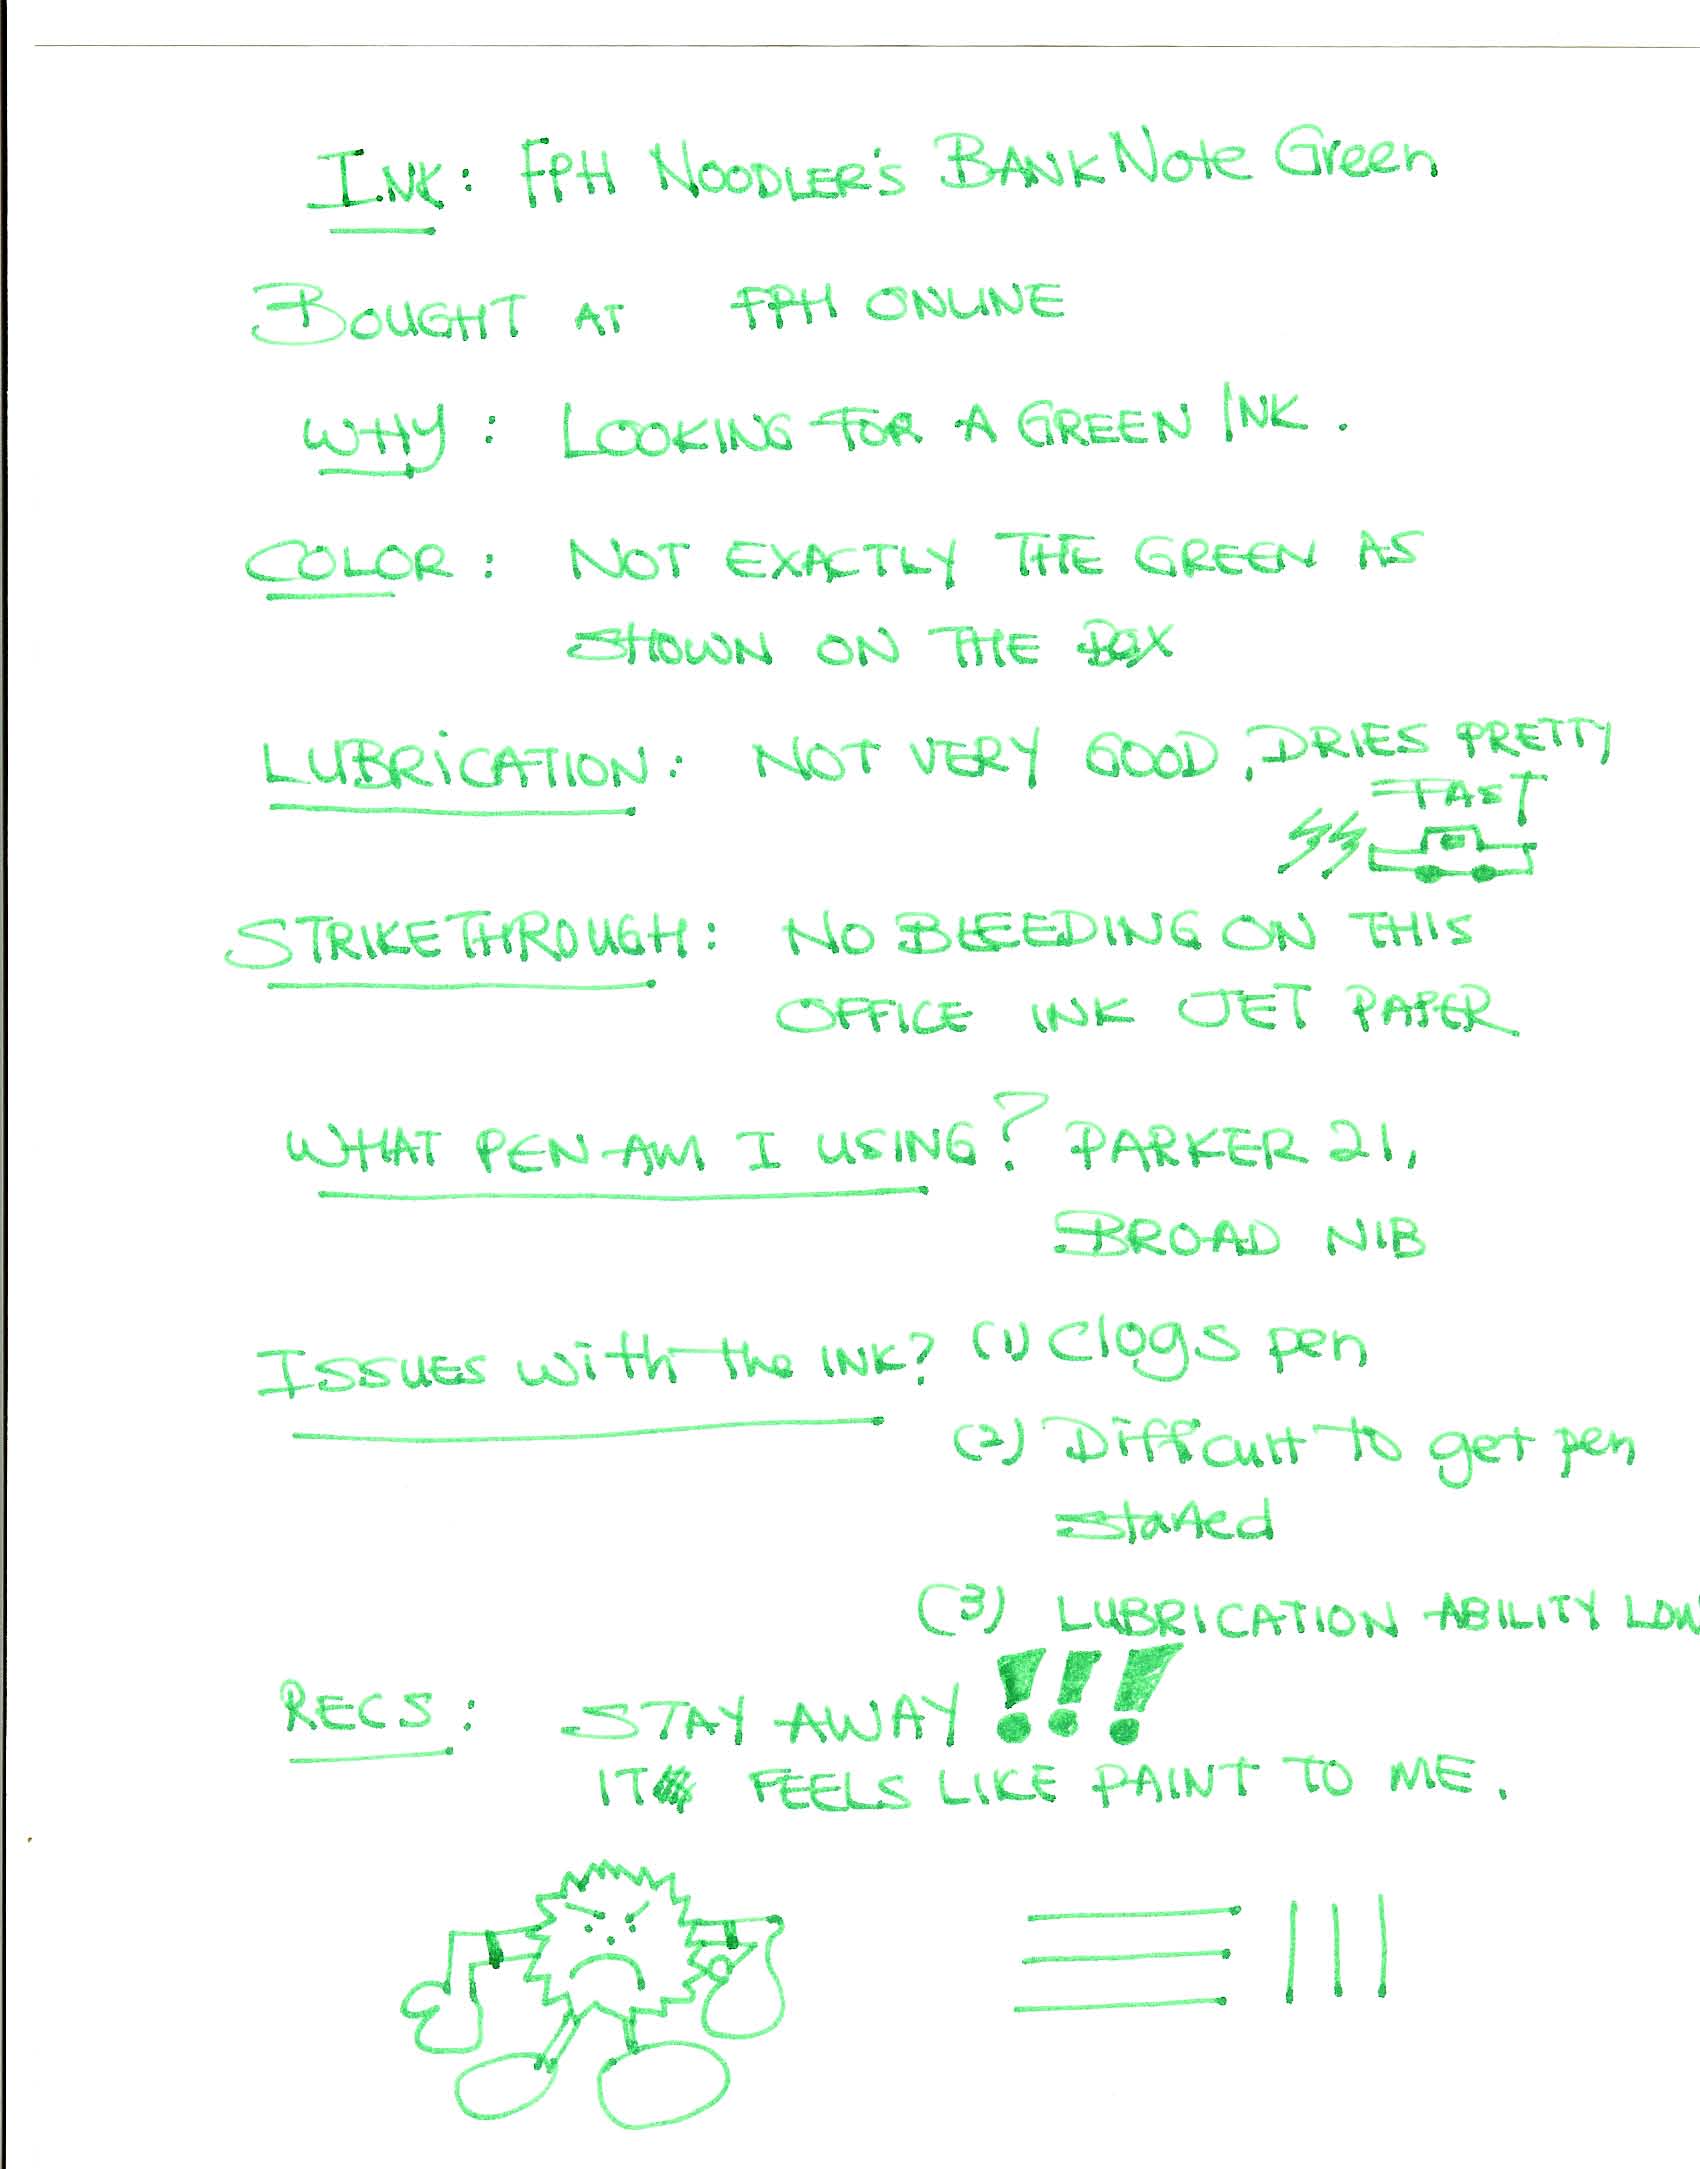 INK: FPH NOODLER'S BANK NOTE Green
BOUGHT AT FPH ONLINE
WHY: LOOKING FOR A GREEN INK.
COLOR: NOT EXACTLY THE GREEN AS
SHOWN ON THE BOX
LUBRiCATION: NOT VERY GOOD, DRIES PRETTY
FAST
STRIKETHROUGH: NO BLEEDING ON THIS
OFFICE INK JET PAPER
WHAT PEN AM I USING? PARKER 21,
BROAD NIB
ISSUES with the INK? (1) Clogs pen
(2) Difficult to get pen
started
(3) LUBRICATION ABILITY LOW
RECS: STAY AWAY!!!
IT FEELS LIKE PAINT TO ME.